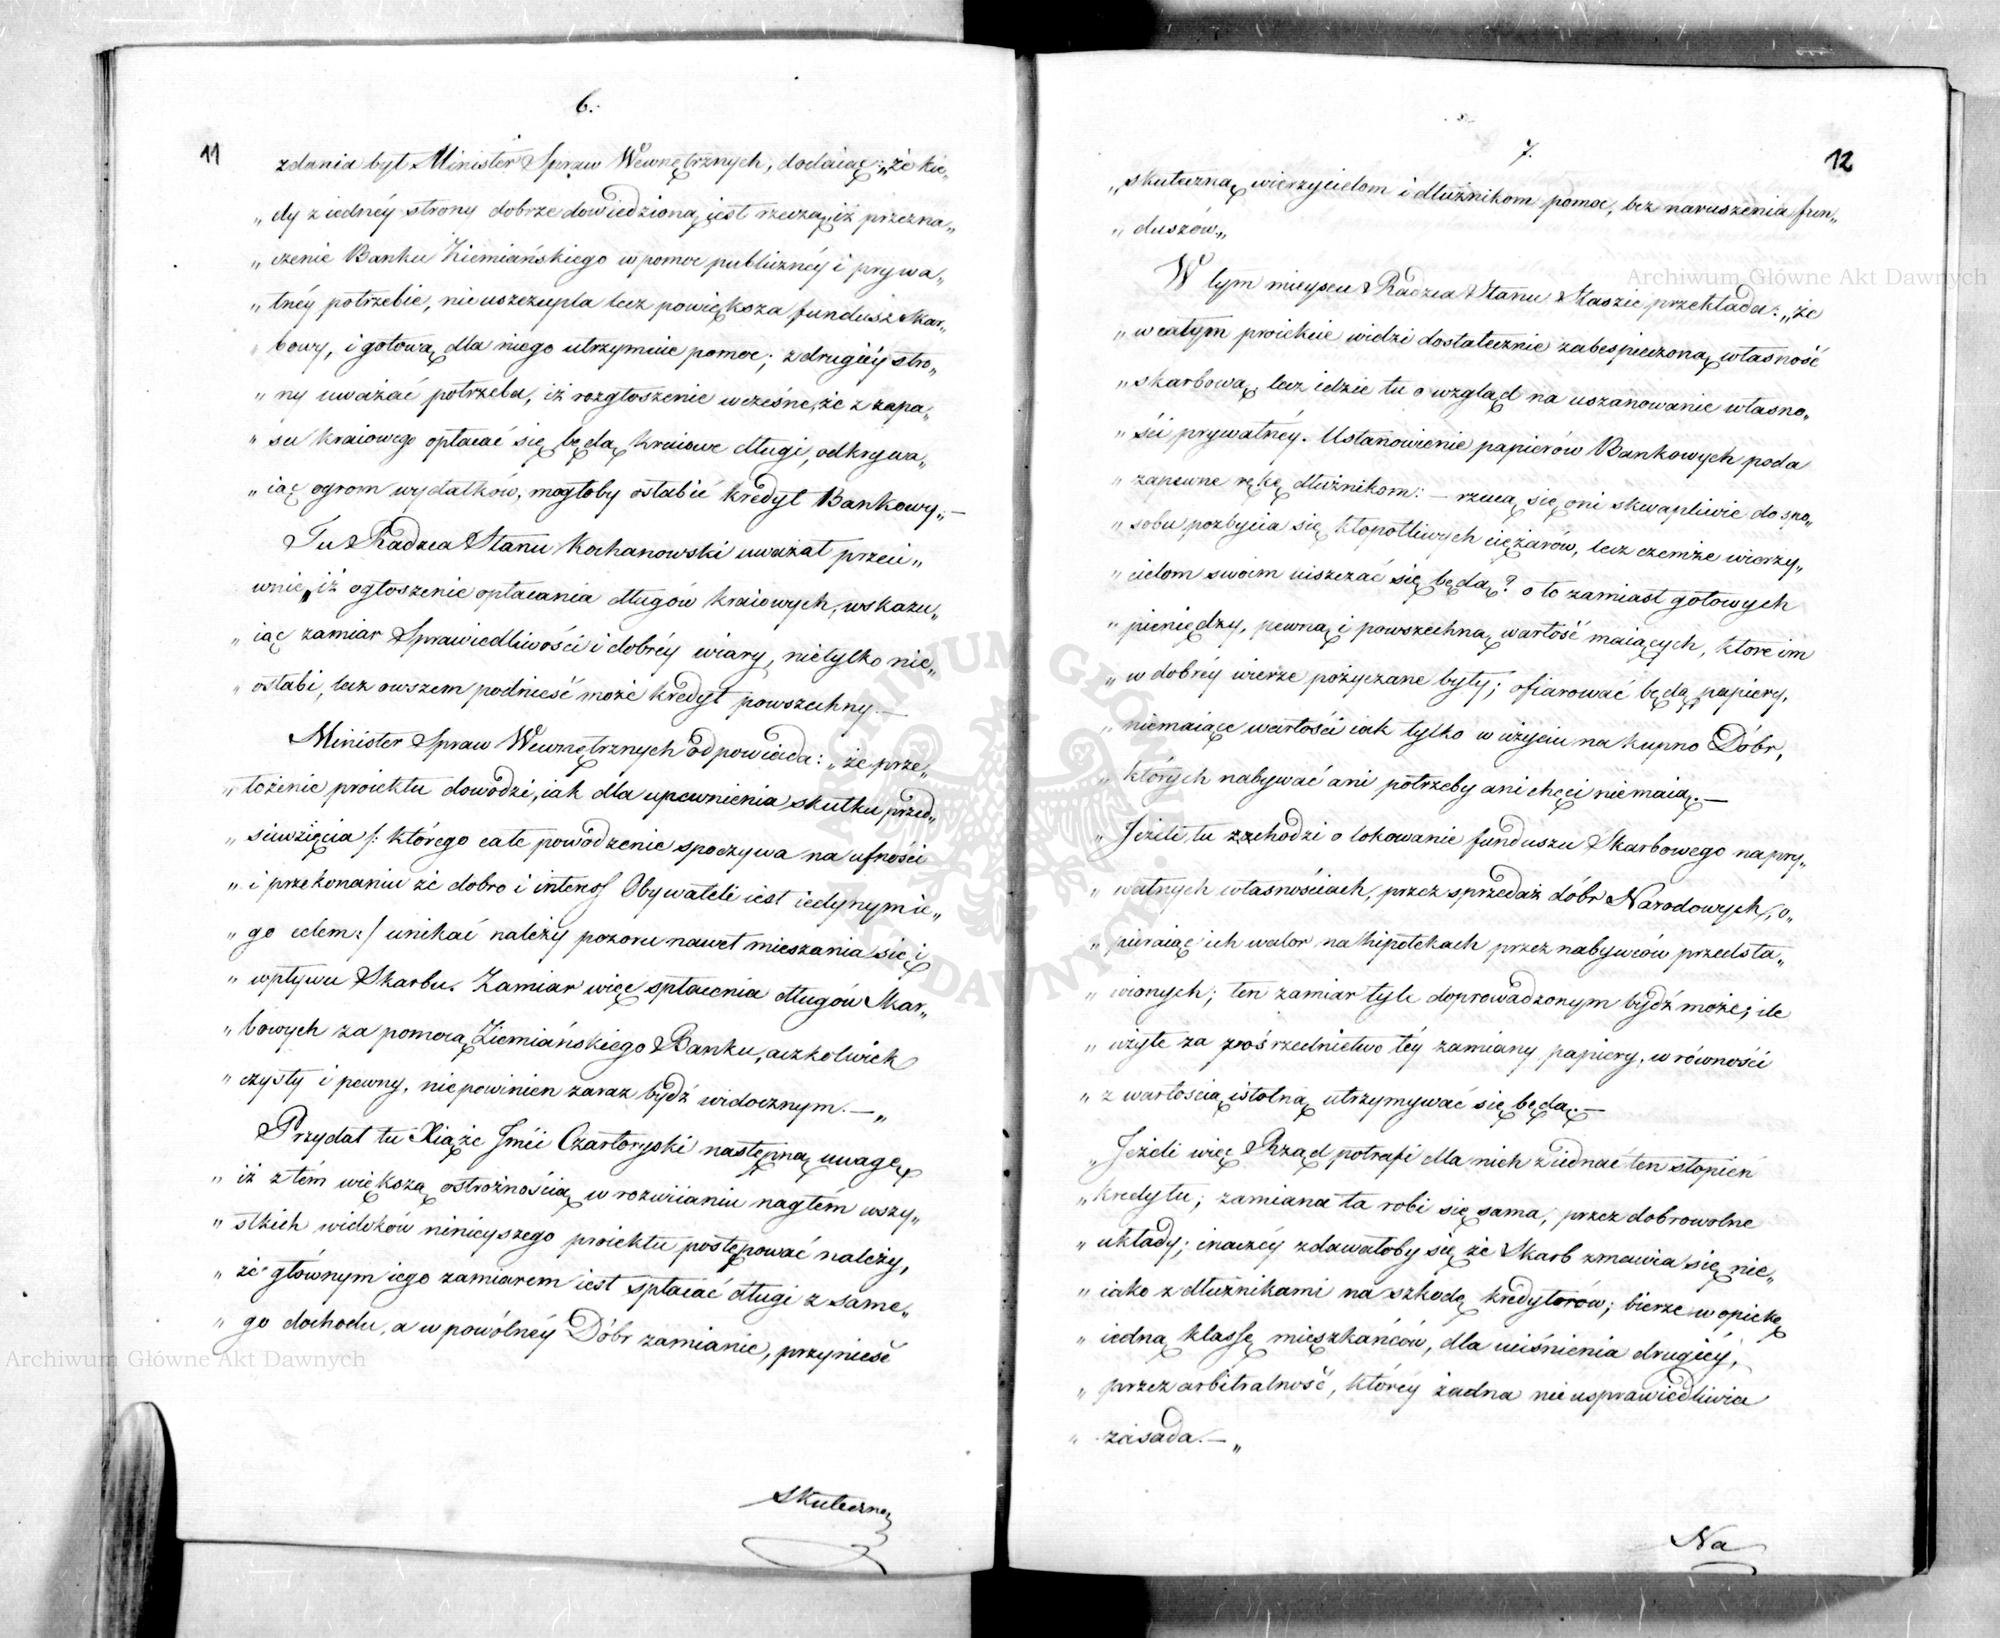 6.
11
zdania był Minister Spraw Wewnętrznych, dodaiąc: „że kie„
„ dy z iednéy strony dobrze dowiedzioną iest rzeczą, iż przezna„
„ czenie Banku Ziemiańskiego w pomoc publicznéy i prywa„
„ tnéy potrzebie, nieuszczupla lecz powiększa fundusz Skar„
„ bowy, i gotową dla niego utrzymuie pomoc; z drugiéy stro„
„ ny uważać potrzeba, iż rozgłoszenie wcześne, że z zapa„
„ su kraiowego opłacać się będą kraiowe długi, odkrywa„
„ iąc ogrom wydatków, mogłoby osłabić kredyt Bankowy„ —
Tu Radzca Stanu Kochanowski uważał przeci„
wnie „iż ogłoszenie opłacania długów kraiowych, wskazu„
„ iąc zamiar Sprawiedliwości i dobréy wiary, nietylko nie„
„ osłabi, lecz owszem podnieść może kredyt powszechny. —
Minister Spraw Wewnętrznych odpowiada: „że prze„
„ łożenie proiektu dowodzi, iak dla upewnienia skutku przed„
„ siewzięcia /: którego całe powodzenie spoczywa na ufności
„ i przekonaniu że dobro i interess Obywateli iest iedynym ie„
„ go celem :/ unikać należy pozoru nawet mieszania się i
„ wpływu Skarbu. Zamiar więc spłacenia długów Skar„
„ bowych za pomocą Ziemiańskiego Banku, aczkolwiek
„ czysty i pewny, niepowinien zaraz bydź widocznym. — „
Przydał tu Xiąże Jmći Czartoryski następną uwagę
„ iż z tém większą ostrożnością w rozwiianiu nagłém wszy„
„ stkich widoków ninieyszego proiektu postępować należy,
„ że głównym iego zamiarem iest spłacać długi z same„
„ go dochodu, a w powolnéy Dóbr zamianie, przynieść
skuteczną
7.
12
„ skuteczną wierzycielom i dłużnikom pomoc, bez naruszenia fun„
„ duszów„
W tym mieyscu Radzca Stanu Staszic przekłada: „że
„ w całym proiekcie widzi dostatecznie zabespieczoną własność
„ skarbową, lecz idzie tu o wzgląd na uszanowanie własno„
„ ści prywatnéy. Ustanowienie papierów Bankowych poda
„ zapewne rękę dłużnikom: — rzucą się oni skwapliwie do spo„
„ sobu pozbycia się kłopotliwych ciężarów, lecz czemże wierzy„
„ cielom swoim uiszczać się będą? oto zamiast gotowych
„ pieniędzy, pewną i powszechną wartość maiących, które im
„ w dobréy wierze pożyczane były; ofiarować będą papiery,
„ niemaiące wartości iak tylko w użyciu na kupno Dóbr,
„ których nabywać ani potrzeby ani chęci niemaią. —
„ Jeżeli tu zachodzi o lokowanie funduszu Skarbowego na pry„
„ watnych własnościach, przez sprzedaż dóbr Narodowych, o„
„ pieraiąc ich walor na hipotekach przez nabywców przedsta„
„ wionych; ten zamiar tyle doprowadzonym bydź może, ile
„ użyte za pośrzednictwo téy zamiany papiery, w równości
„ z wartością istotną utrzymywać się będą. —
„ Jeżeli więc Rząd potrafi dla nich ziednać ten stopień
„ kredytu; zamiana ta robi się sama, przez dobrowolne
„ układy; inaczéy zdawałoby się że Skarb zmawia się nie„
„ iako z dłużnikami na szkodę kredytorów; bierze w opiekę
„ iedną klassę mieszkańców, dla uciśnienia drugiéy,
„ przez arbitralność, któréy żadna nieusprawiedliwia
„ zasada. — „
Na
Archiwum Główne Akt Dawnych
Archiwum Główne Akt Dawnych
ARCHIWUM GŁÓWNE AKT DAWNYCH